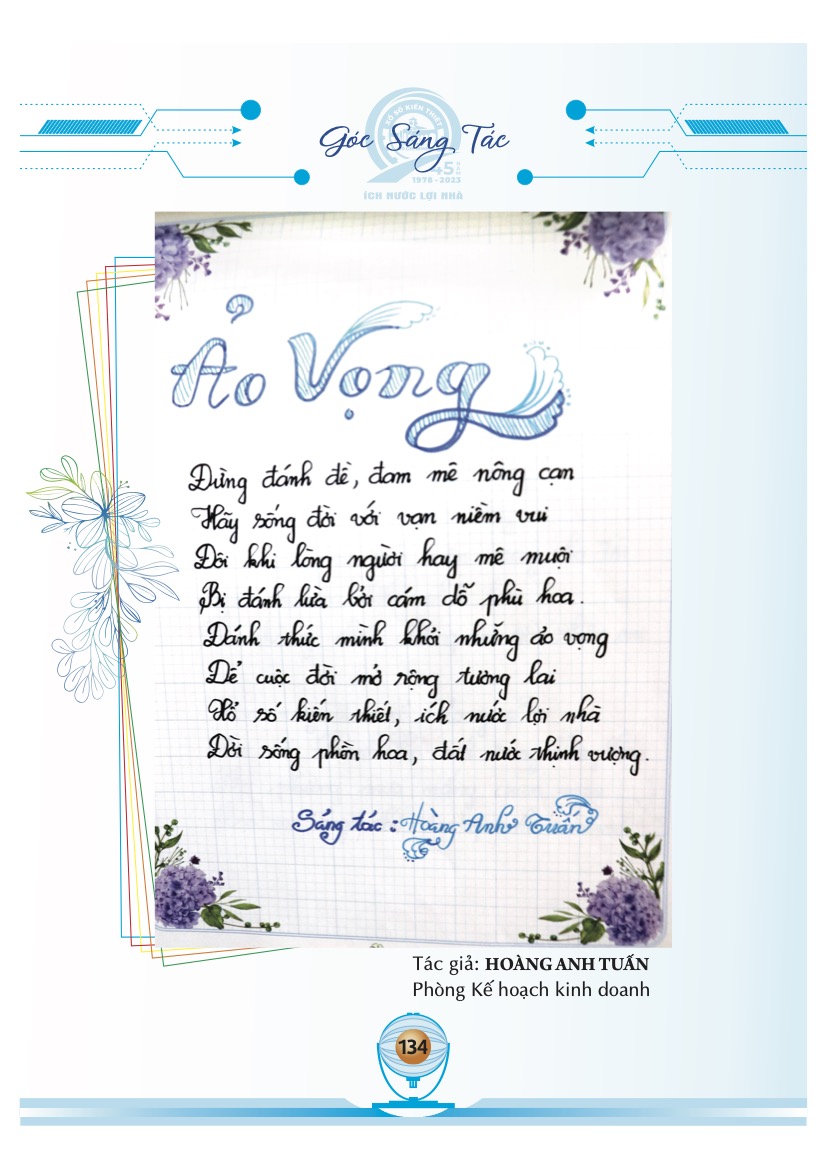 XỔ SỐ KIẾN THIẾT
Góc Sáng Tác
45
1978 - 2023
ÍCH NƯỚC LỢI NHÀ
Ảo Vọng
Đừng đánh đề, đam mê nông cạn
Hãy sống đời với vạn niềm vui
Đôi khi lòng người hay mê muội
Bị đánh lừa bởi cám dỗ phù hoa.
Đánh thức mình khỏi những ảo vọng
Để cuộc đời mở rộng tương lai
Xổ số kiến thiết, ích nước lợi nhà
Đời sống phồn hoa, đất nước thịnh vượng.
Sáng tác : Hoàng Anh Tuấn
Tác giả: HOÀNG ANH TUẤN
Phòng Kế hoạch kinh doanh
134